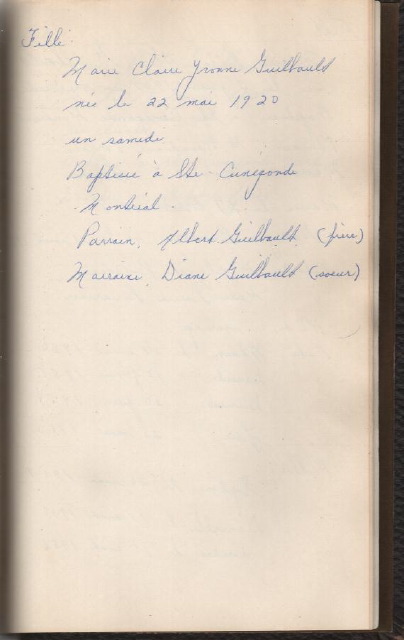 Fille
Marie Claire Yvonne Guilbault
née le 22 mai 1920
un samedi
Baptisée à Ste-Cunégonde
Montréal.
Parrain, Albert Guilbault (frère)
Marraine, Diane Guilbault (soeur)